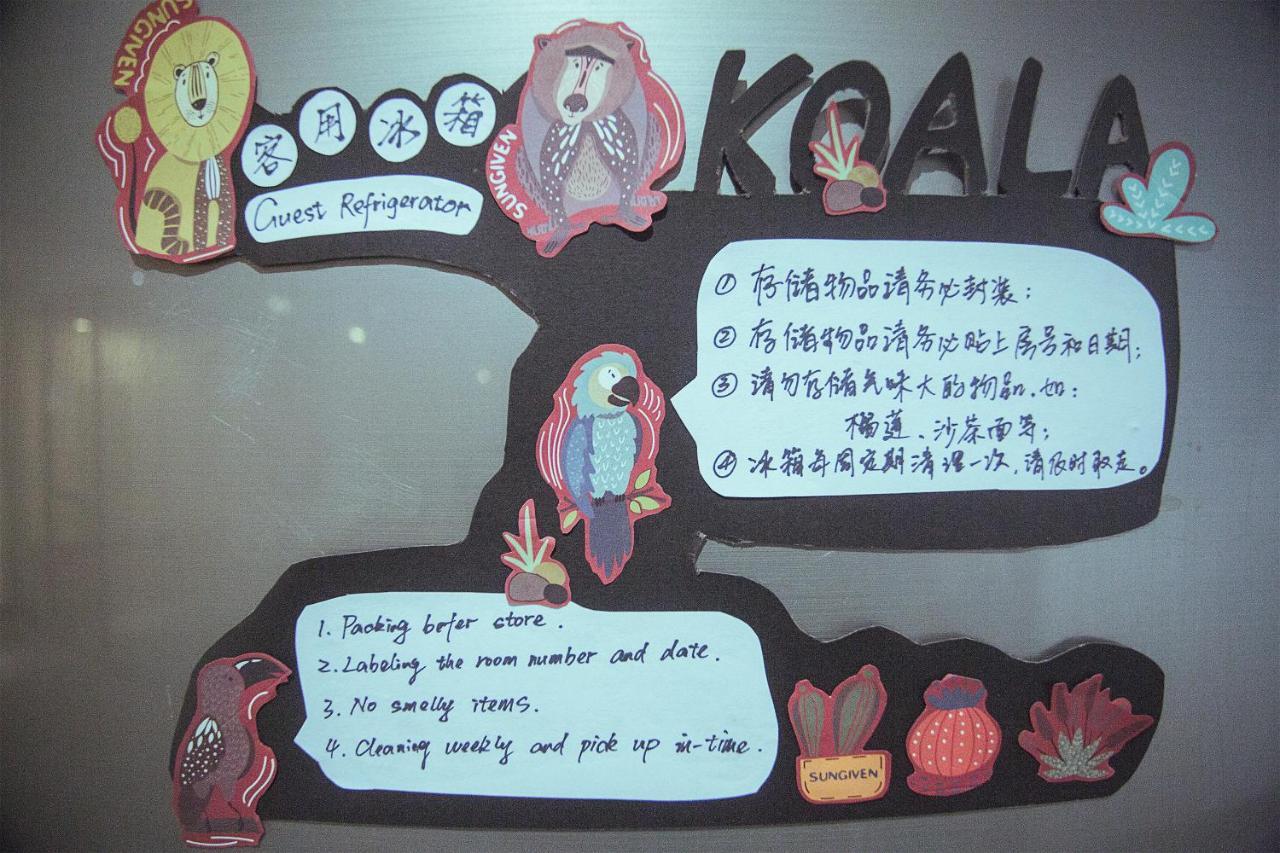 SUNGIVEN
客用冰箱
Guest Refrigerator
SUNGIVEN
KOALA
① 存储物品请务必封装；
② 存储物品请务必贴上房号和日期；
③ 请勿存储气味大的物品.如：
榴莲、沙茶面等；
④ 冰箱每周定期清理一次,请及时取走。
1. Packing befer store.
2. Labeling the room number and date.
3. No smelly items.
4. Cleaning weekly and pick up in-time.
SUNGIVEN